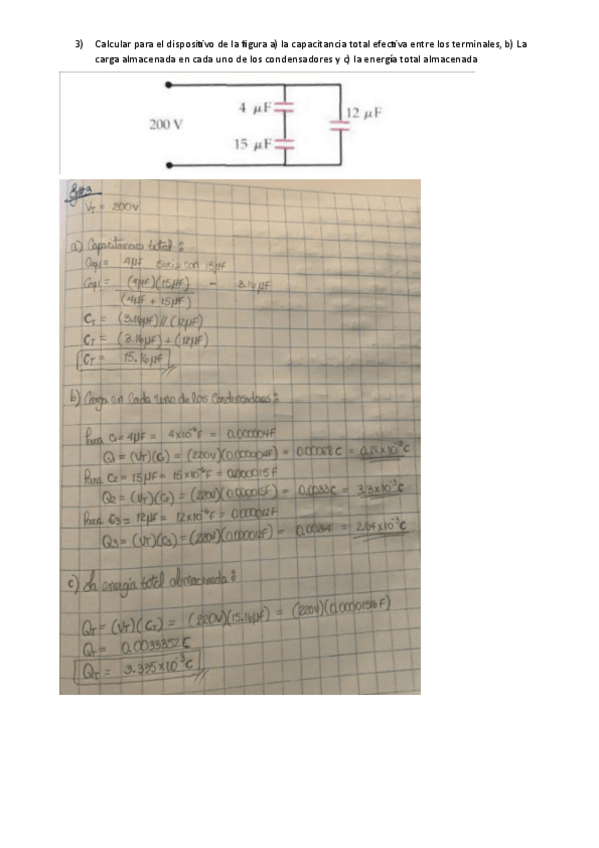 3) Calcular para el dispositivo de la figura a) la capacitancia total efectiva entre los terminales, b) La
carga almacenada en cada uno de los condensadores y c) la energía total almacenada
4 μF
12 μF
200 V
15 μF
VT = 200V
a) Capacitancia total:
Ceq1 = 4μF serie con 15μF
Ceq1 = (4μF)(15μF) = 3.16μF
(4μF + 15μF)
CT = (3.16μF)//(12μF)
CT = (3.16μF)+(12μF)
CT = 15.16μF
b) Carga en cada uno de los Condensadores:
Para C1 = 4μF = 4x10⁻⁶F = 0.000004F
Q1 = (VT)(C1) = (220V)(0.000004F) = 0.00088C =
Para C2 = 15μF = 15x10⁻⁶F = 0.000015F
Q2 = (VT)(C2) = (220V)(0.000015F) = 0.0033C = 3.3x10⁻³C
Para C3 = 12μF = 12x10⁻⁶F = 0.000012F
Q3 = (VT)(C3) = (220V)(0.000012F) = 0.00264 = 2.64x10⁻³C
c) La energía total almacenada:
QT = (VT)(CT) = (220V)(15.16μF) = (220V)(0.00001516F)
QT = 0.0033352C
QT = 3.335x10⁻³C